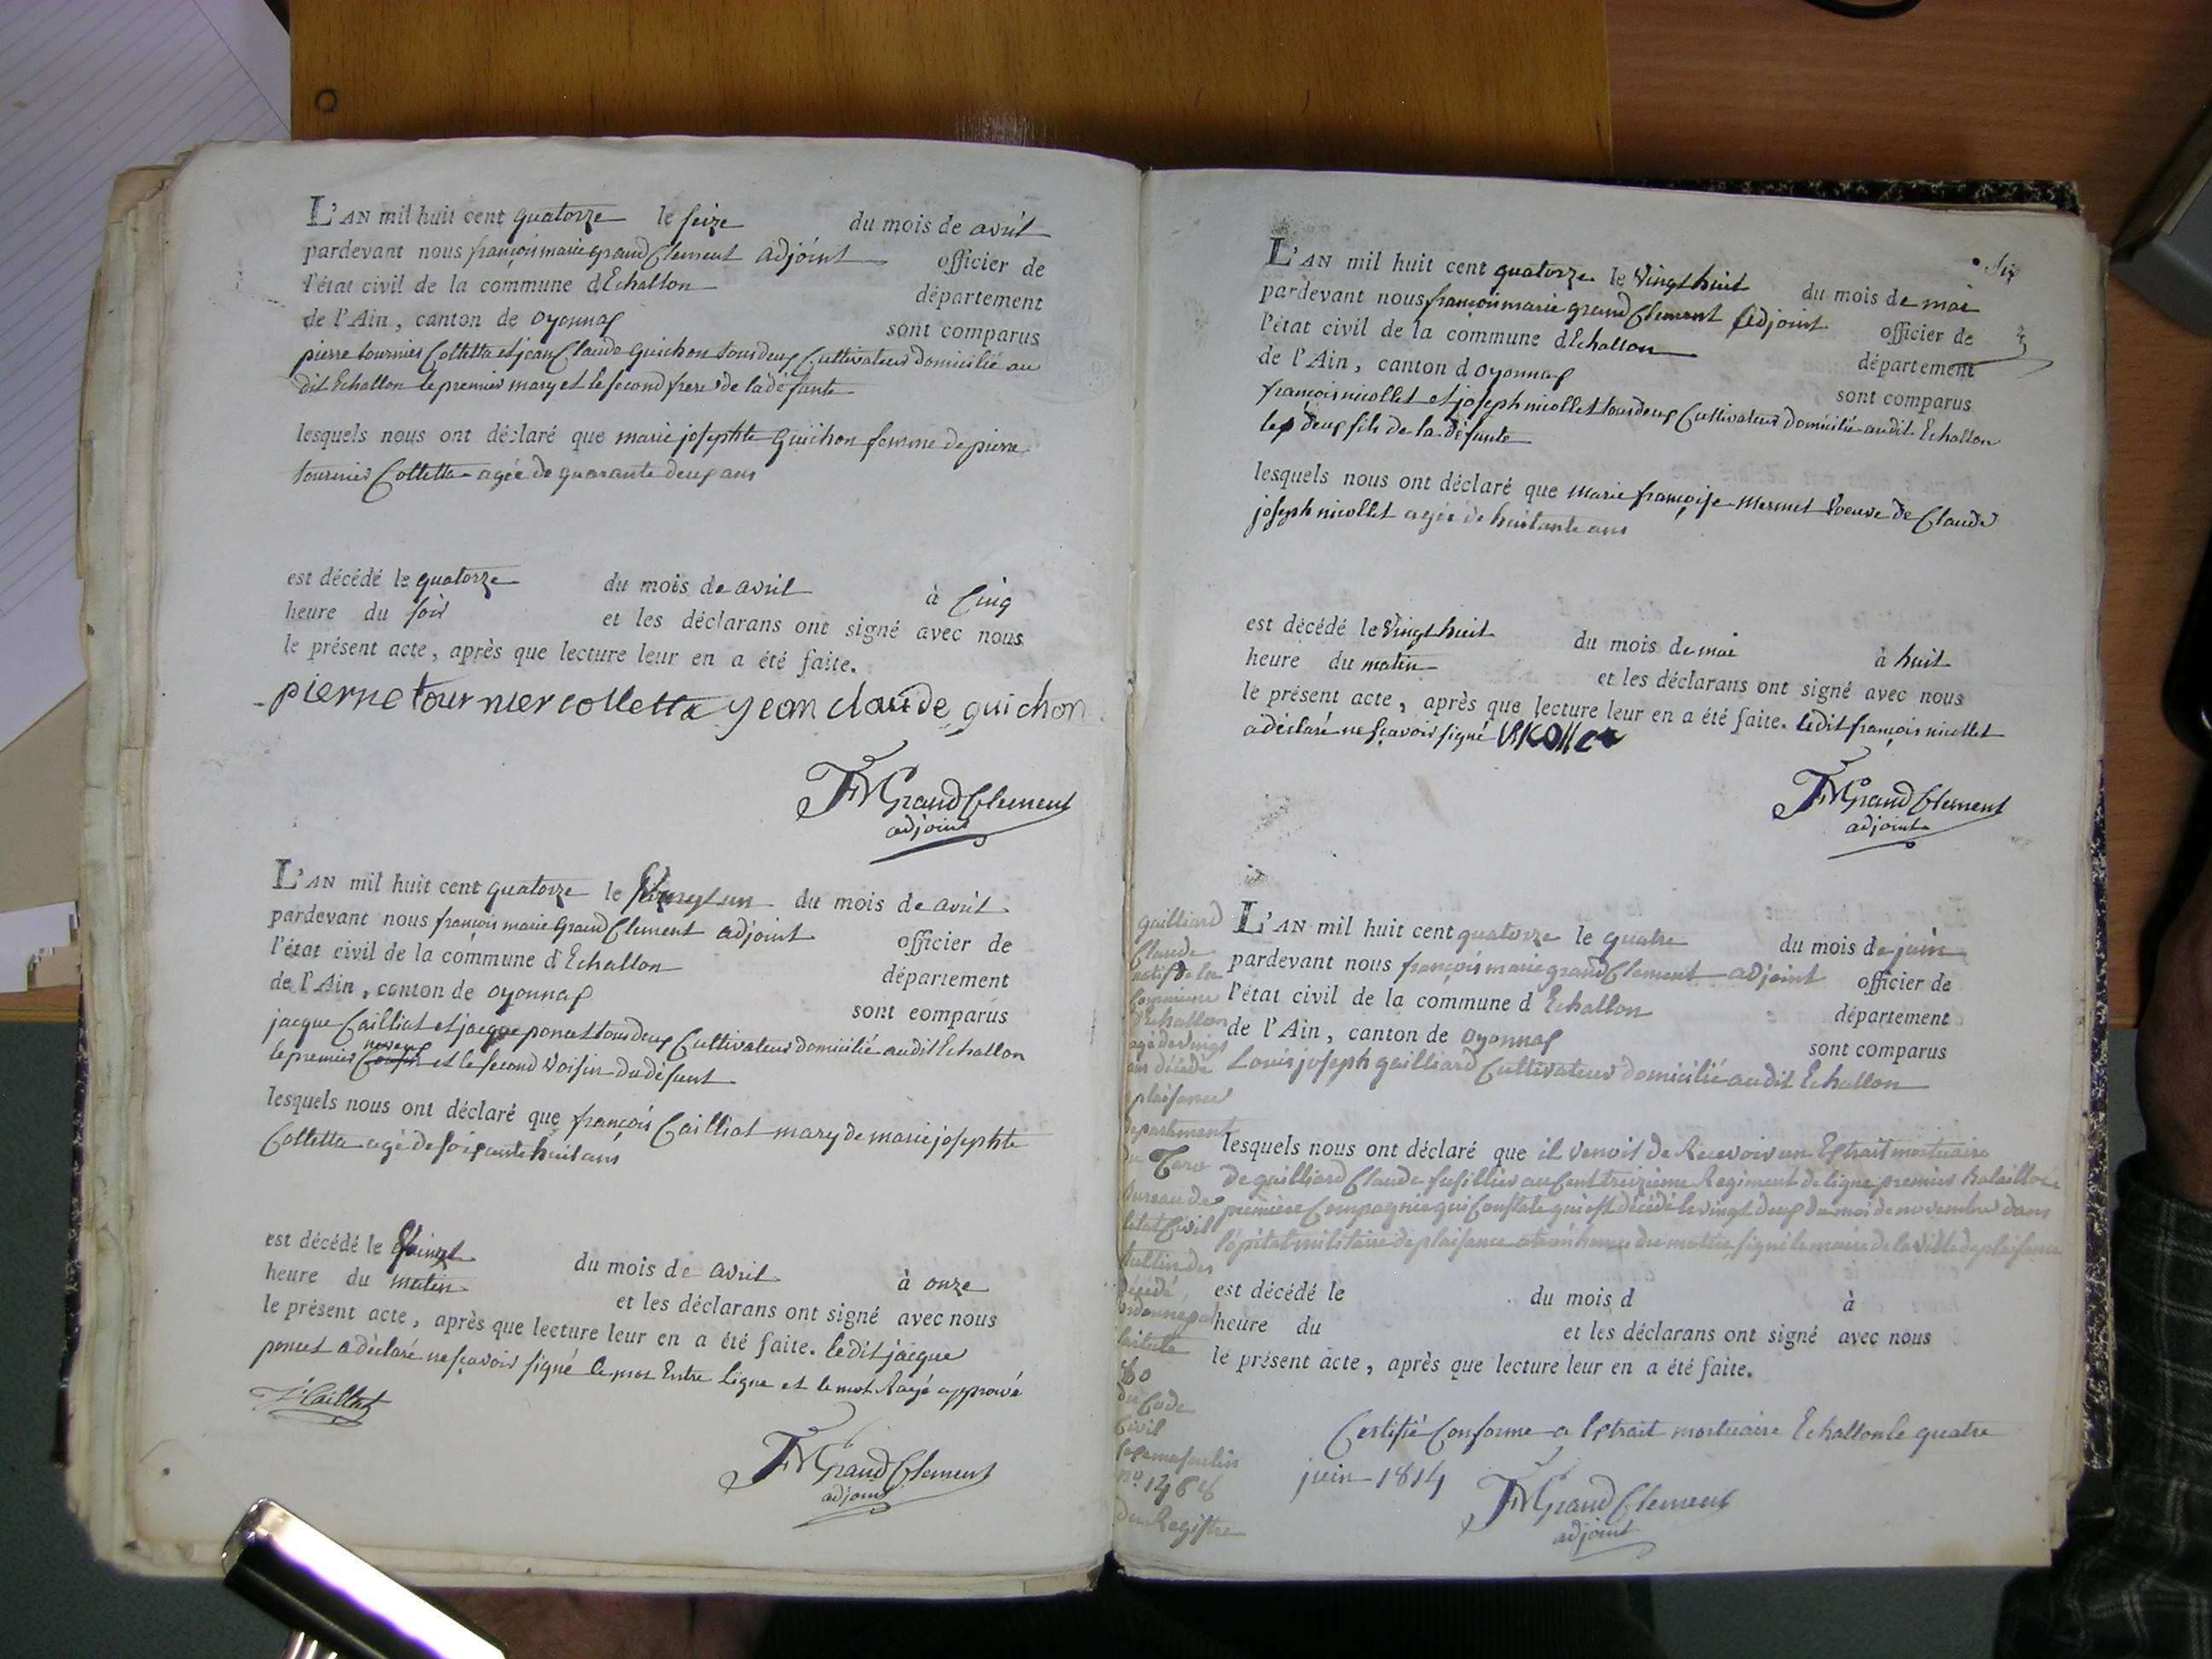 L'AN mil huit cent quatorze le seize du mois de avril
pardevant nous françois marie grand Clement adjoint officier de
l'état civil de la commune d'Echallon département
de l'Ain, canton de oyonnax sont comparus
pierre tournier Colletta et jean Claude Guichon tous deux Cultivateurs domicilié au
dit Echallon le premier mary et le second frere de la défunte
lesquels nous ont déclaré que marie josephte Guichon femme de pierre
tournier Colletta agée de quarante deux ans
est décédé le quatorze du mois de avril à Cinq
heure du soir et les déclarans ont signé avec nous
le présent acte, après que lecture leur en a été faite.
pierre tournier colletta jean claude guichon
FM Grand Clement
adjoint
L'AN mil huit cent quatorze le du mois de avril
pardevant nous françois marie Grand Clement adjoint officier de
l'état civil de la commune d'Echallon département
de l'Ain, canton de oyonnax sont comparus
jacque Cailliat et jacque poncet tous deux Cultivateurs domicilié audit Echallon
neveux
le premier et le second Voisin du défunt
lesquels nous ont déclaré que françois Cailliat mary de marie josephte
Colletta agé de soixante huit ans
est décédé le du mois de avril à onze
heure du matin et les déclarans ont signé avec nous
le présent acte, après que lecture leur en a été faite. ledit jacque
poncet a déclaré ne sçavoir signé le mot Entre ligne et le mot Rayé approuvé
J Caillat
FM Grand Clement
adjoint
Six
L'AN mil huit cent quatorze le Vingt huit du mois de mai
pardevant nous françois marie grand Clement adjoint officier de
l'état civil de la commune d'Echallon département
de l'Ain, canton d oyonnax sont comparus
françois nicollet et joseph nicollet tous deux Cultivateurs domicilié audit Echallon
les deux fils de la défunte
lesquels nous ont déclaré que marie françoise mermet Veuve de Claude
joseph nicollet agée de huitante ans
est décédé le Vingt huit du mois de mai à huit
heure du matin et les déclarans ont signé avec nous
le présent acte, après que lecture leur en a été faite. ledit françois nicollet
a déclaré ne sçavoir signé Nicollet
FM Grand Clement
adjoint
gailliard
Claude
natif de la
Commune
d'Echallon
agé de vingt
ans décédé
plaisance
departement
du Taro
Bureau de
l'etat Civil
décédé
l'article
80
du Code
Civil
sexe masculin
n° 1468
du Registre
L'AN mil huit cent quatorze le quatre du mois de juin
pardevant nous françois marie grand Clement adjoint officier de
l'état civil de la commune d Echallon département
de l'Ain, canton de oyonnax sont comparus
Louis joseph gailliard Cultivateur domicilié audit Echallon
lesquels nous ont déclaré que il venoit de Recevoir un Extrait mortuaire
de gailliard Claude fusillier au Cent treizieme Regiment de ligne premier bataillon
premiere Compagnie qui Constate qui est décédé le vingt deux du moi de novembre dans
l'ôpital militaire de plaisance heures du matin signé le maire de la ville de plaisance
est décédé le du mois d à
heure du et les déclarans ont signé avec nous
le présent acte, après que lecture leur en a été faite.
Certifié Conforme a l'Extrait mortuaire Echallon le quatre
juin 1814
FM Grand Clement
adjoint